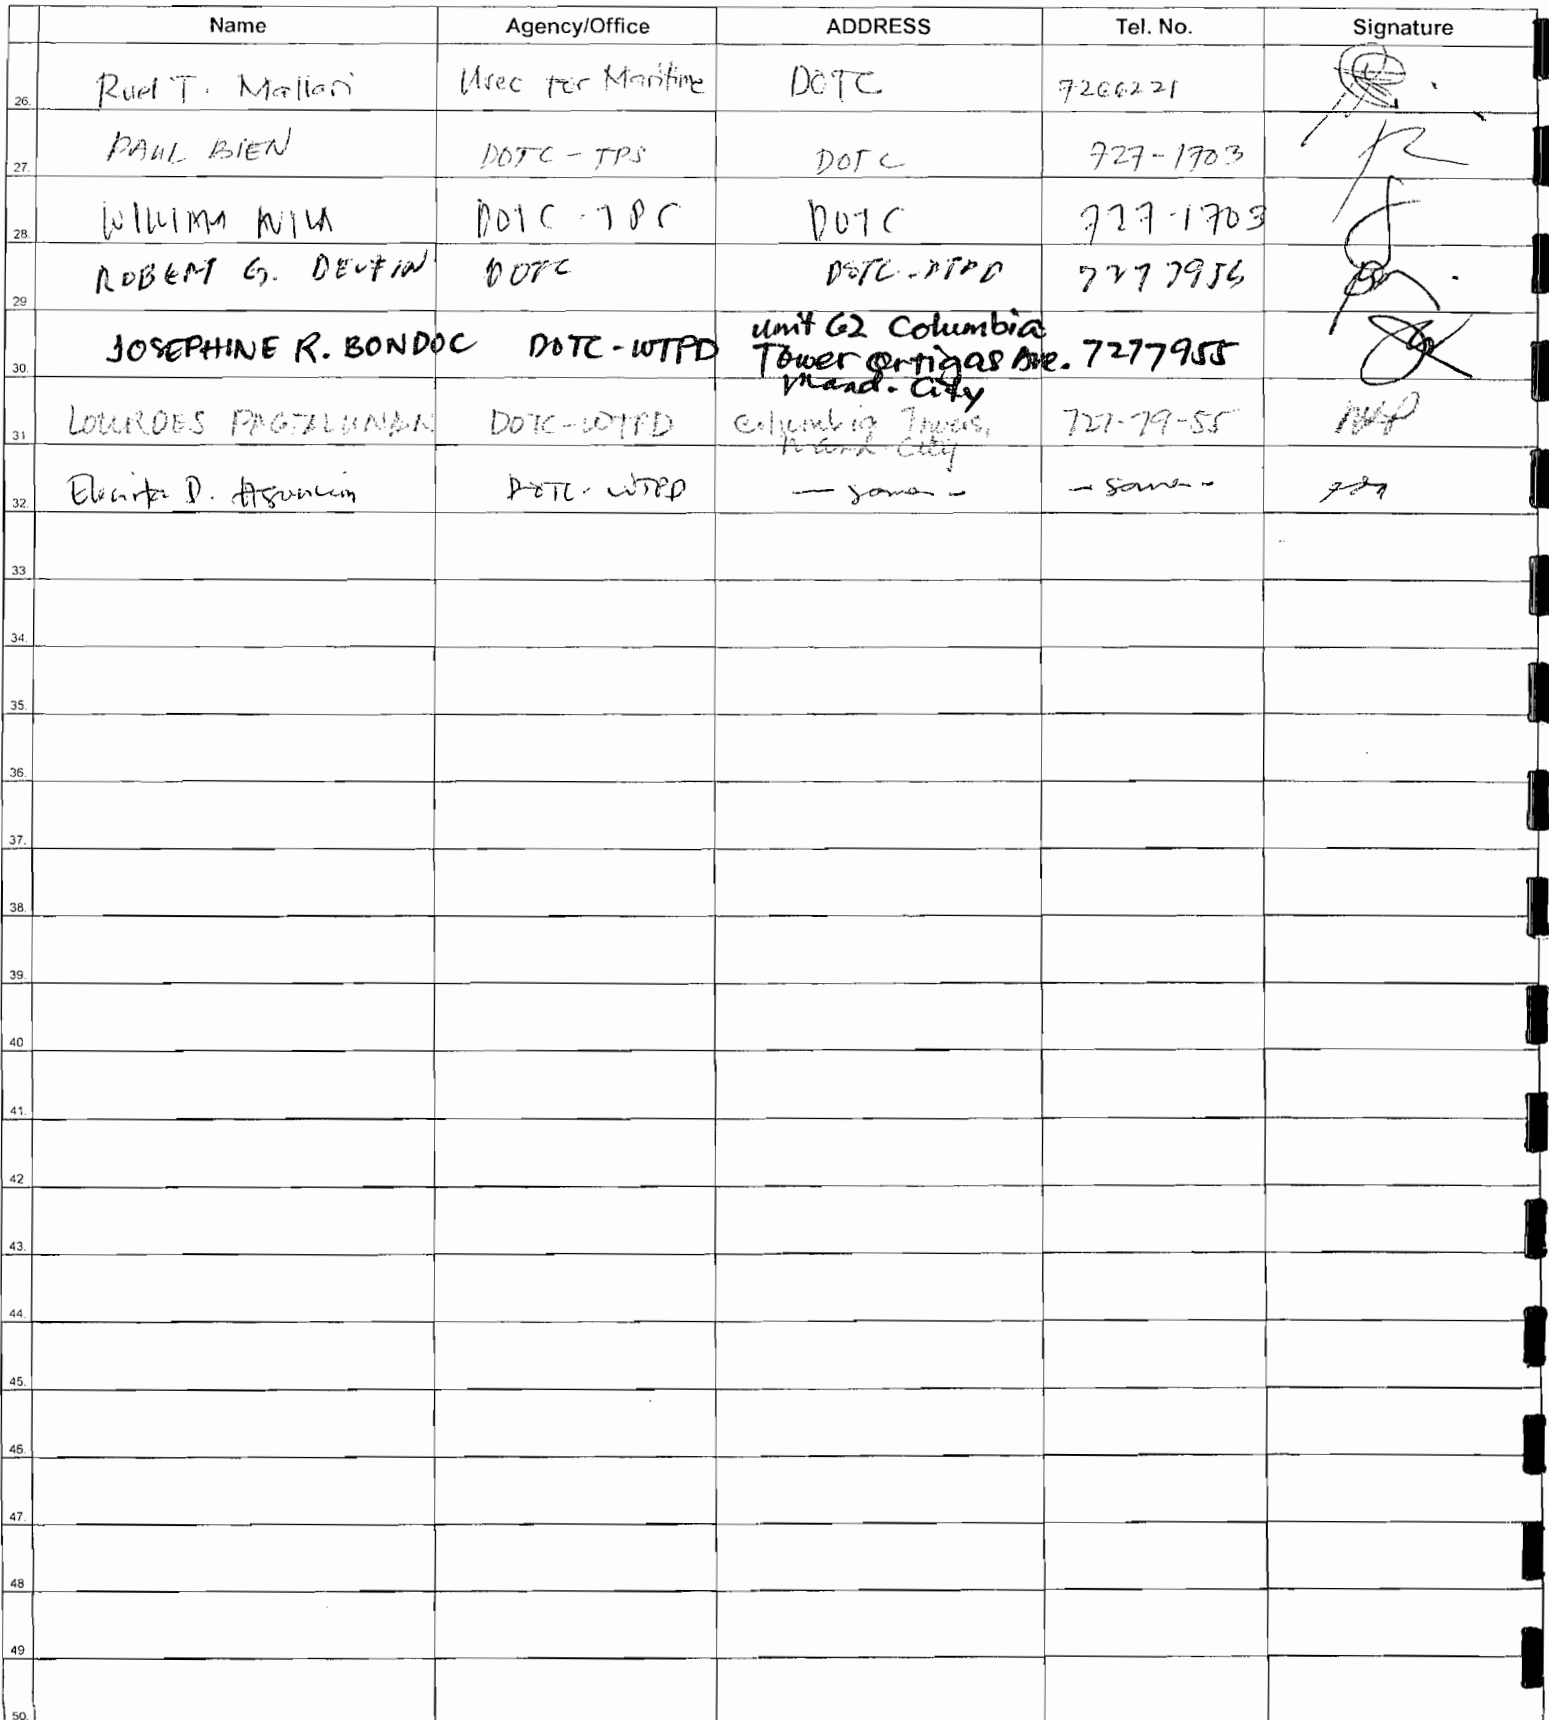 Name Agency/Office ADDRESS Tel. No. Signature
26. Ruel T. Mallari Usec for Maritime DOTC 7266221
27. PAUL BIEN DOTC - TPS DOTC 727-1703
28. WILLIAM DOTC - TPS DOTC 727-1703
29 ROBERT G. DELFIN DOTC DOTC - 7277956
30. JOSEPHINE R. BONDOC DOTC - WTPD Unit 62 Columbia
Tower Ortigas Ave. 7277955
Mand. City
31 LOURDES PAGTALUNAN DOTC-WTPD Columbia Towers, 727-79-55
Mand. City
32. D. DOTC - WTPD — same - - same -
33
34.
35.
36.
37.
38.
39.
40
41.
42
43.
44.
45.
46.
47.
48
49
50.